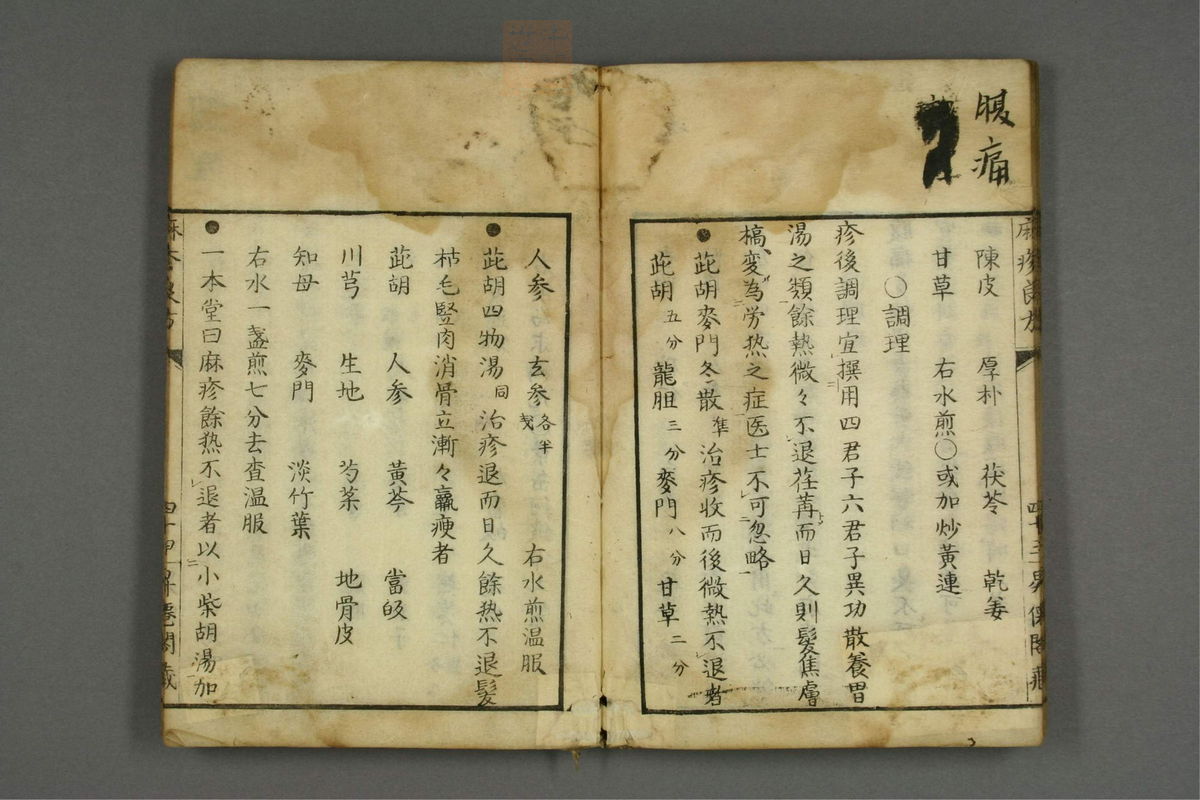 腹痛
陳皮 厚朴 茯苓 乾姜
甘草 右水煎○或加炒黄連
○調理
疹後調理宜撰用四君子六君子異功散養胃
湯之類餘熱微々不退荏苒而日久則髪焦膚
槁変為労热之症医士不可忽略
●茈胡麥門冬散準治疹收而後微熱不退者
茈胡五分龍胆三分麥門八分甘草二分
人参 玄参各半戔 右水煎温服
●茈胡四物湯同治疹退而日久餘热不退髪
枯毛竪肉消骨立漸々羸痩者
茈胡 人参 黄芩 當皈
川芎 生地 芍薬 地骨皮
知母 麥門 淡竹葉
右水一盞煎七分去査温服
●一本堂曰麻疹餘热不退者以小柴胡湯加